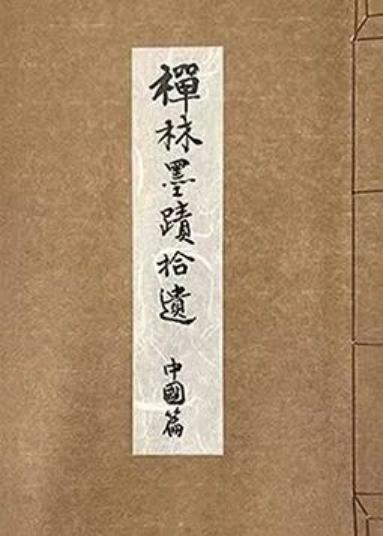 禪林墨蹟拾遺 中國篇